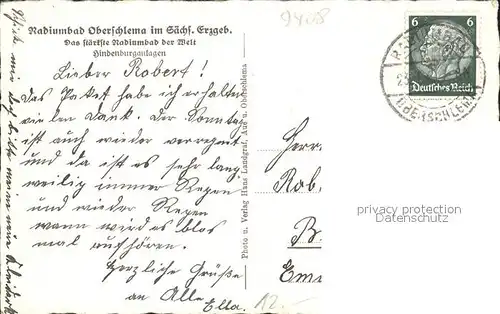 9408
Radiumbad Oberschlema im Sächs. Erzgeb.
Das stärkste Radiumbad der Welt
Hindenburganlagen
Lieber Robert!
Das Paket habe ich erhalten
vielen Dank. Der Sonntag
ist auch wieder verregnet
und da ist es sehr lang
weilig immer Regen
und wieder Regen
wann wird es blos
mal aufhören.
Herzliche Grüße
an Alle
Ella.
12.-
Photo u. Verlag Hans Landgraf, Aue u. Oberschlema
Herrn
Rob.
B.
6 6
Deutsches Reich
OBERSCHLEMA
privacy protection
watermark